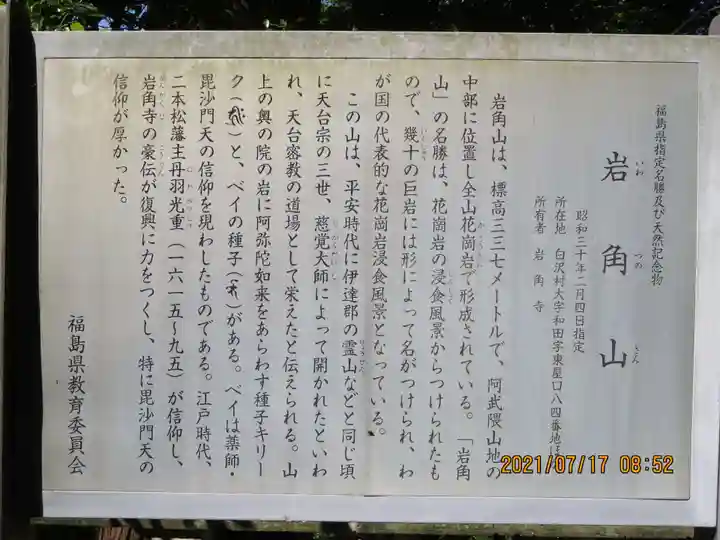 福島県指定名勝及び天然記念物
岩角山
いわ つの さん
昭和三十年二月四日指定
所在地 白沢村大字和田字東屋口八四番地ほ
所有者 岩角寺
岩角山は、標高三三七メートルで、阿武隈山地の
中部に位置し全山花崗岩で形成されている。「岩角
山」の名勝は、花崗岩の浸食風景からつけられたも
ので、幾十の巨岩には形によって名がつけられ、わ
が国の代表的な花崗岩浸食風景となっている。
この山は、平安時代に伊達郡の霊山などと同じ頃
に天台宗の三世、慈覚大師によって開かれたといわ
れ、天台密教の道場として栄えたと伝えられる。山
上の奥の院の岩に阿弥陀如来をあらわす種子キリー
ク( )と、ベイの種子( )がある。ベイは薬師・
毘沙門天の信仰を現わしたものである。江戸時代、
二本松藩主丹羽光重(一六一五〜九五)が信仰し、
岩角寺の豪伝が復興に力をつくし、特に毘沙門天の
信仰が厚かった。
福島県教育委員会
2021/07/17 08:52